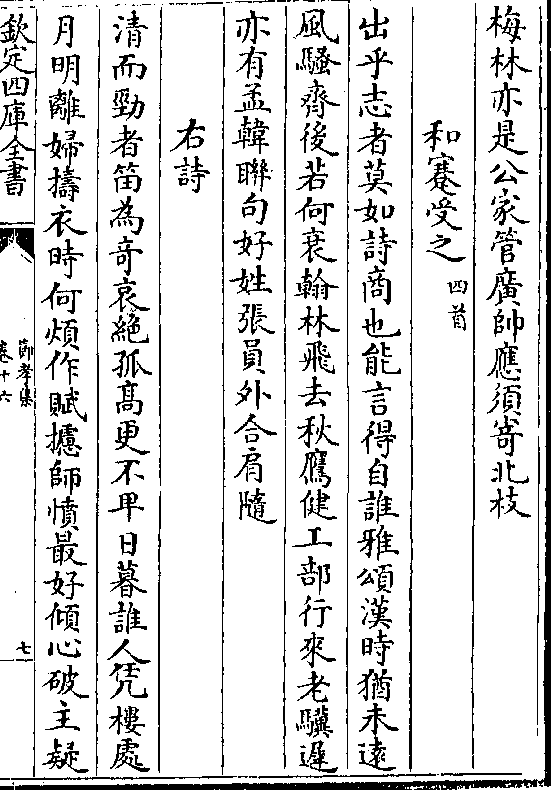 梅林亦是公家管廣帥應須寄北枝
和蹇受之四首
出乎志者莫如詩商也能言得自誰雅頌漢時猶未遠
風騷齊後若何衰翰林飛去秋鷹健工部行來老驥遲
亦有孟韓聯句好姓張員外合肩隨
右詩
清而勁者笛為奇哀絶孤髙更不卑日暮誰人凭樓處
月明離婦擣衣時何煩作賦攄師憤最好傾心破主疑
欽定四庫全書
節孝集
卷十六
七